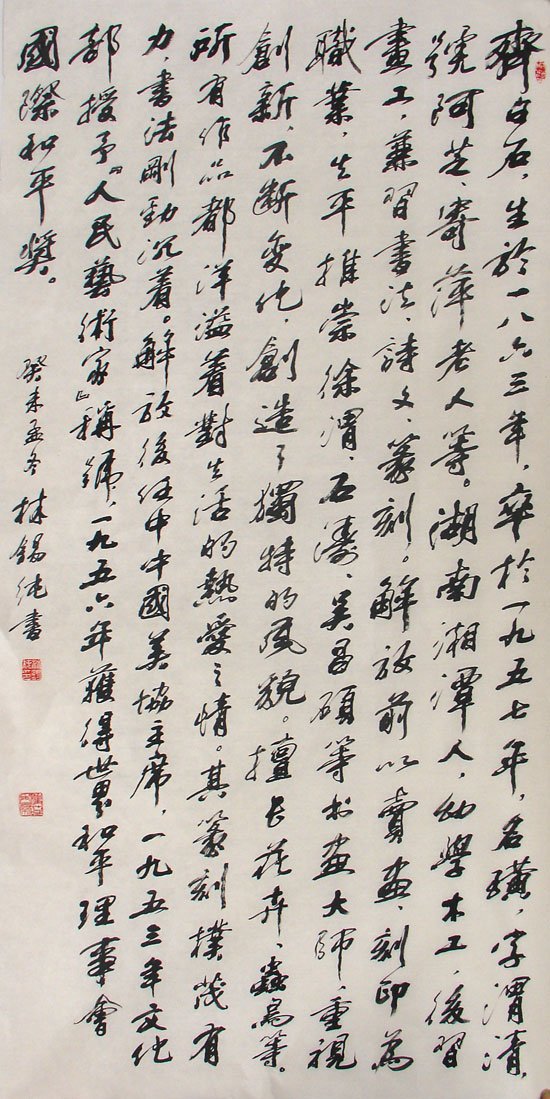 齊白石，生於一八六三年，卒於一九五七年，名璜，字渭清，
號阿芝、寄萍老人等。湖南湘潭人，幼學木工，後習
畫工，兼習書法、詩文、篆刻。解放前以賣畫、刻印為
職業，生平推崇徐渭、石濤、吴昌碩等書畫大師，重視
創新，不斷變化，創造了獨特的風貌。擅長花卉、蟲鳥等。
所有作品都洋溢着對生活的熱愛之情。其篆刻樸茂有
力，書法剛勁沉着。解放後任中中國美協主席，一九五三年文化
部授予『人民藝術家』稱號，一九五六年獲得世界和平理事會
國際和平獎。
癸未孟冬林錫純書